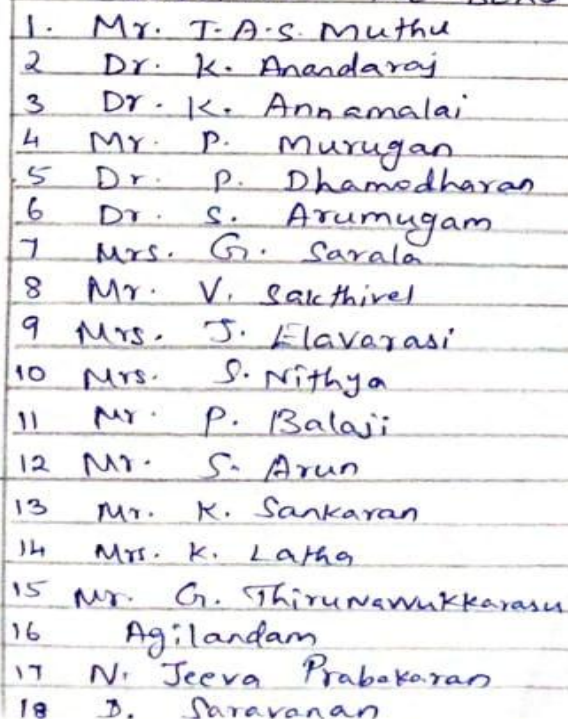 1. Mr. T.A.S. Muthu
2 Dr. K. Anandaraj
3 Dr. K. Annamalai
4 Mr. P. Murugan
5 Dr. P. Dhamodharan
6 Dr. S. Arumugam
7 Mrs. G. Sarala
8 Mr. V. Sakthivel
9 Mrs. J. Elavarasi
10 Mrs. S. Nithya
11 Mr. P. Balaji
12 Mr. S. Arun
13 Mr. K. Sankaran
14 Mrs. K. Latha
15 Mr. G. Thirunavukkarasu
16 Agilandam
17 N. Jeeva Prabakaran
18 D. Saravanan